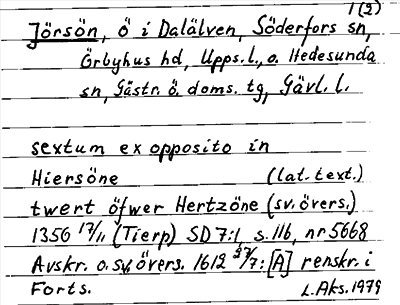 1(2)
Jörsön, ö i Dalälven, Söderfors sn,
Örbyhus hd, Upps.l., o. Hedesunda
sn, Gästr. ö. doms. tg, Gävl. l.
sextum ex opposito in
Hiersöne (lat. text.)
twert öfwer Hertzöne (sv. övers.)
1356 17/11 (Tierp) SD 7:1, s. 11b, nr 5668
Avskr. o. sv. övers. 1612 27/7: [A] renskr. i
Forts. L. Aks. 1979